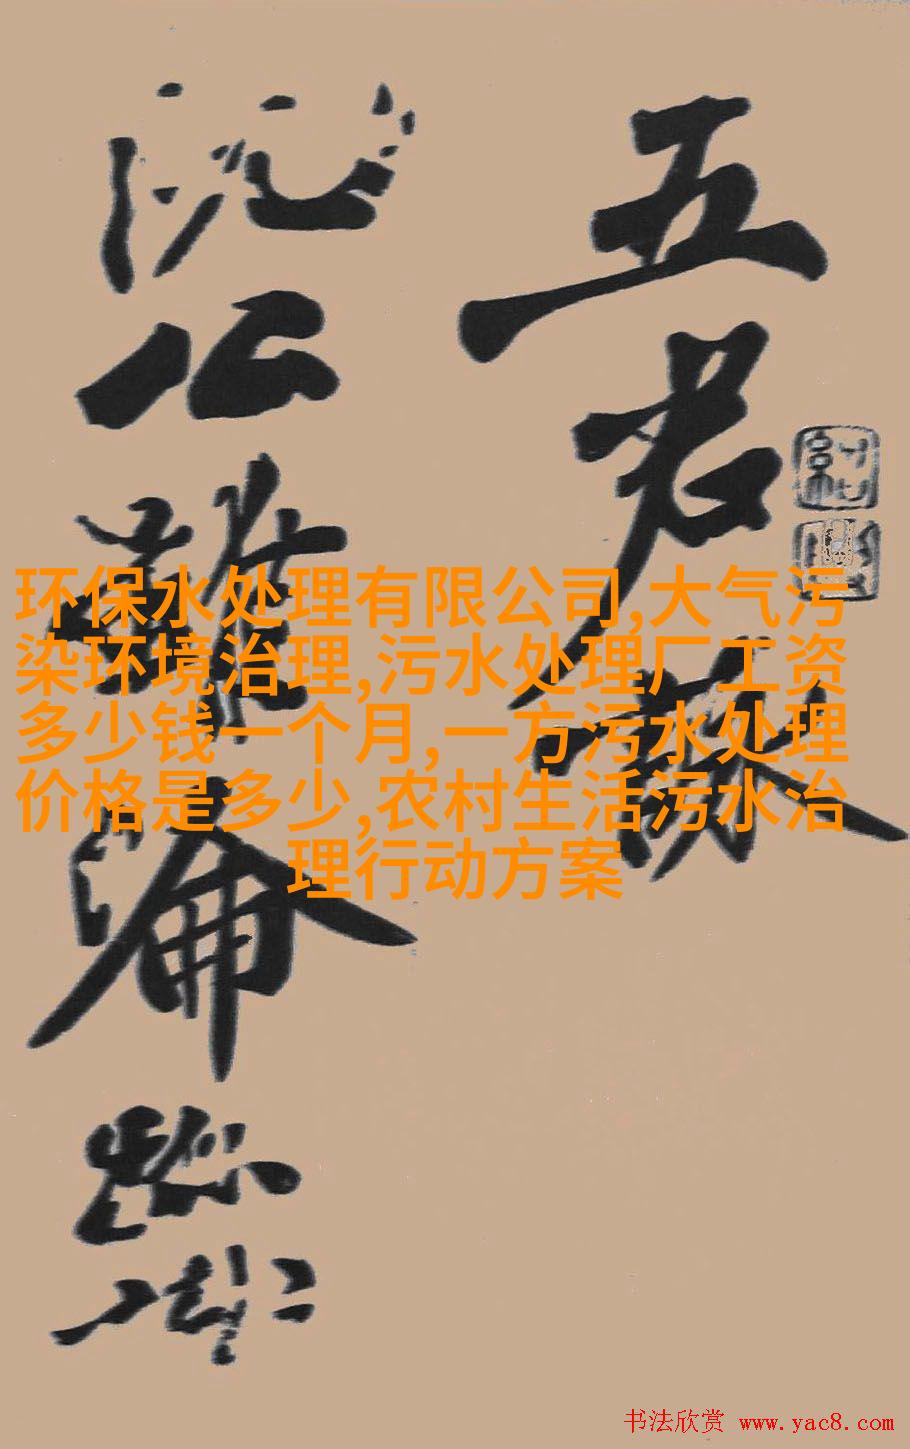 五君咏
沉公
论
环保水处理有限公司,大气污
染环境治理,污水处理厂工资
多少钱一个月,一方污水处理
价格是多少,农村生活污水治
理行动方案
书法欣赏 www.yac8.com